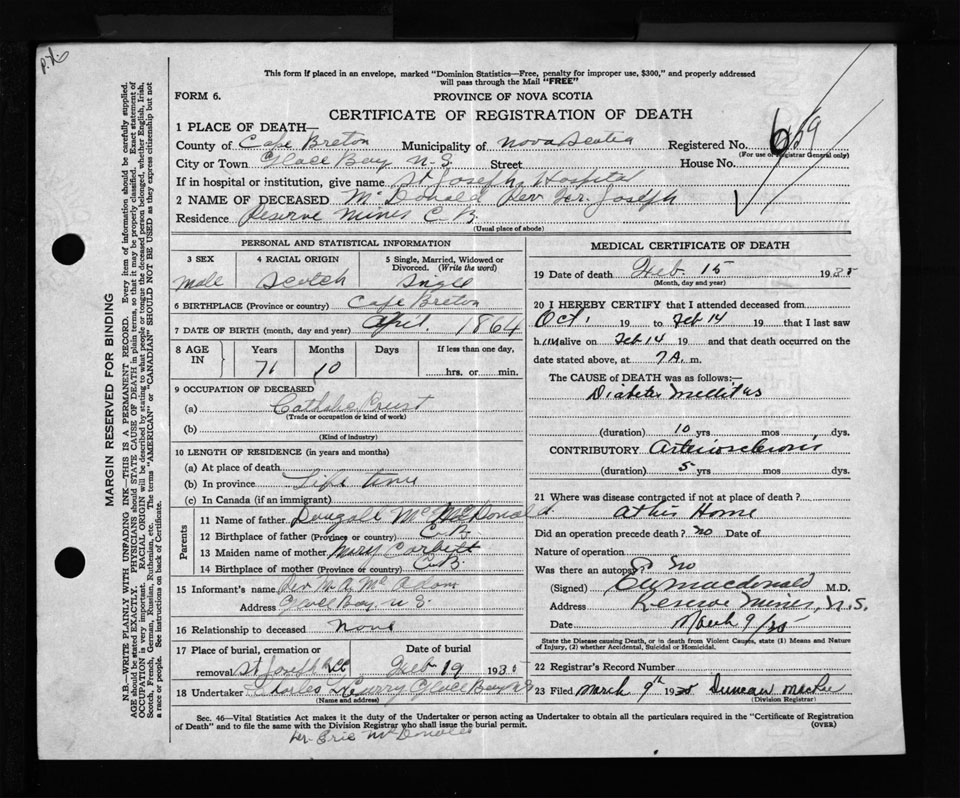 This form if placed in an envelope, marked "Dominion Statistics—Free, penalty for improper use, $300," and properly addressed
will pass through the Mail "FREE"
FORM 6.
PROVINCE OF NOVA SCOTIA
CERTIFICATE OF REGISTRATION OF DEATH
1 PLACE OF DEATH—
County of Cape Breton Municipality of Nova Scotia Registered No.
(For use of Registrar General only)
City or Town Glace Bay N.S. Street House No.
If in hospital or institution, give name St Joseph Hospital
2 NAME OF DECEASED McDonald Rev Fr. Joseph
Residence Reserve Mines C.B.
(Usual place of abode)
MARGIN RESERVED FOR BINDING
N.B.—WRITE PLAINLY WITH UNFADING INK—THIS IS A PERMANENT RECORD. Every item of information should be carefully supplied.
AGE should be stated EXACTLY. PHYSICIANS should STATE CAUSE OF DEATH in plain terms, so that it may be properly classified. Exact statement of
OCCUPATION is very important. RACIAL ORIGIN will be described by stating to what people or tongue the deceased person belonged, whether English, Irish,
Scotch, French, German, Russian, Ruthenian, etc. The terms "AMERICAN" or "CANADIAN" SHOULD NOT BE USED as they express citizenship but not
a race or people. See instructions on back of Certificate.
PERSONAL AND STATISTICAL INFORMATION
3 SEX 4 RACIAL ORIGIN 5 Single, Married, Widowed or
Divorced. (Write the word)
Male Scotch Single
6 BIRTHPLACE (Province or country) Cape Breton
7 DATE OF BIRTH (month, day and year) April 1864
8 AGE IN Years Months Days If less than one day,
71 10 hrs. or min.
9 OCCUPATION OF DECEASED
(a) Catholic Priest
(Trade or occupation or kind of work)
(b)
(Kind of industry)
10 LENGTH OF RESIDENCE (in years and months)
(a) At place of death
(b) In province Life time
(c) In Canada (if an immigrant)
Parents
11 Name of father Dougall Mc McDonald
12 Birthplace of father (Province or country) C.B.
13 Maiden name of mother Mary Corbett
14 Birthplace of mother (Province or country) C.B.
15 Informant's name Rev M. A. McAdam
Address Glace Bay N.S.
16 Relationship to deceased None
17 Place of burial, cremation or Date of burial
removal St Joseph Feb 19 1935
18 Undertaker Charles Glace Bay NS
(Name and address)
MEDICAL CERTIFICATE OF DEATH
19 Date of death Feb. 15 1935
(Month, day and year)
20 I HEREBY CERTIFY that I attended deceased from
Oct. 19 to Feb 14 19 that I last saw
h im alive on Feb 14 19 and that death occurred on the
date stated above, at 7 A. m.
The CAUSE of DEATH was as follows:—
Diabetes Mellitus
(duration) 10 yrs mos dys.
CONTRIBUTORY Arteriosclerosis
(duration) 5 yrs mos dys.
21 Where was disease contracted if not at place of death?
At his Home
Did an operation precede death? no Date of
Nature of operation
Was there an autopsy? No
(Signed) Macdonald M.D.
Address Reserve Mines, N.S.
Date March 9/35
State the Disease causing Death, or in death from Violent Causes, state (1) Means and Nature
of Injury, (2) whether Accidental, Suicidal or Homicidal.
22 Registrar's Record Number
23 Filed March 9th 1935 Duncan MacRae
(Division Registrar)
Sec. 46—Vital Statistics Act makes it the duty of the Undertaker or person acting as Undertaker to obtain all the particulars required in the "Certificate of Registration
of Death" and to file the same with the Division Registrar who shall issue the burial permit. (OVER)
per Eric McDonald